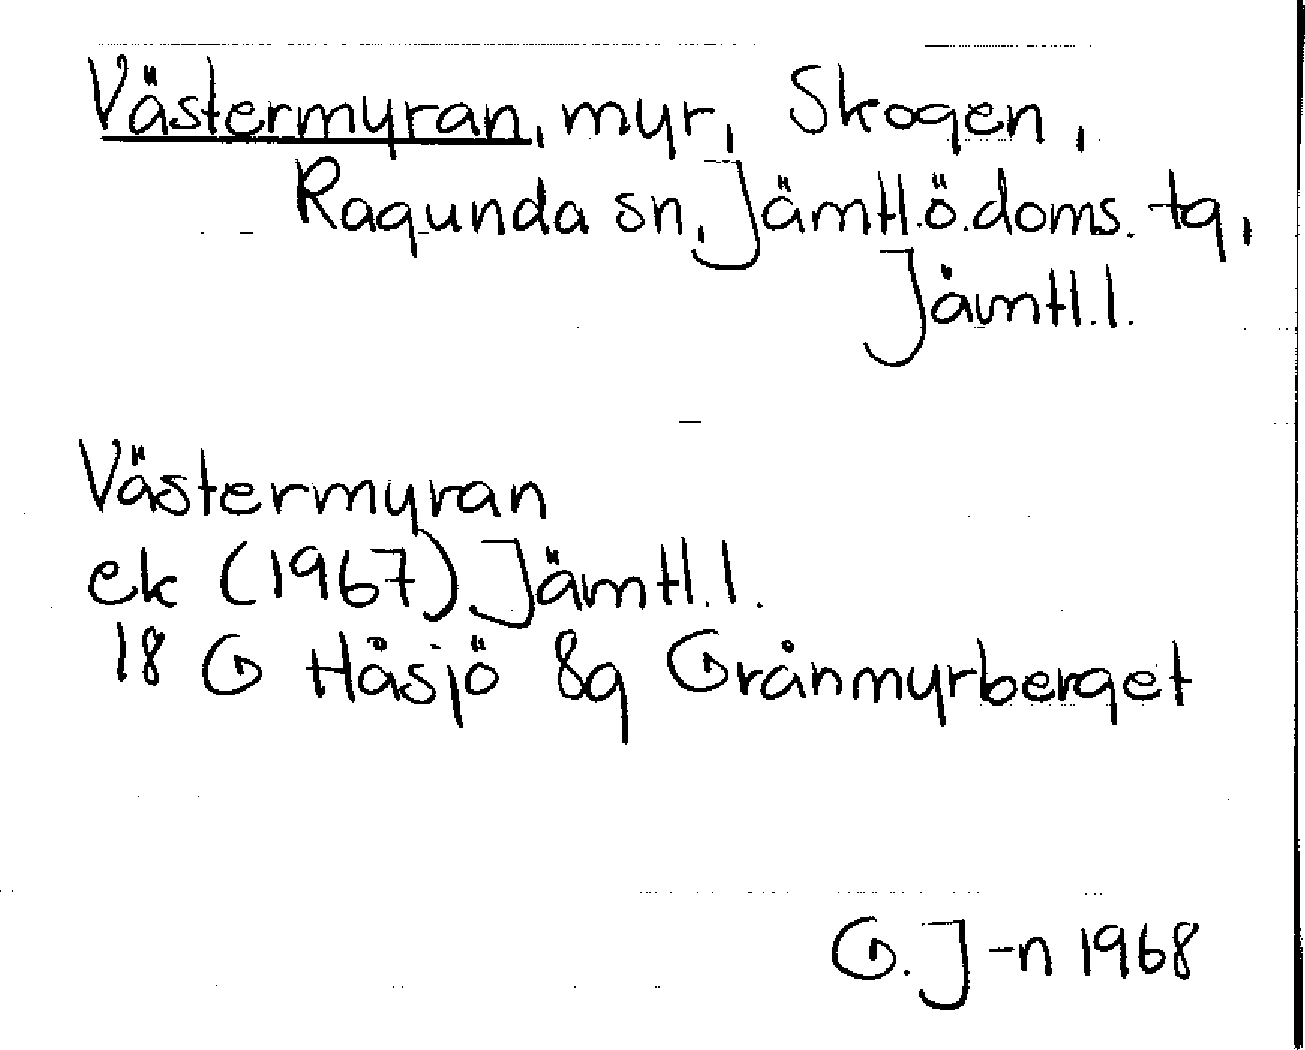 Västermyran, myr, Skogen,
Ragunda sn, Jämtl.ö.doms. tg,
Jämtl.l.
Västermyran
ek (1967) Jämtl.l.
18 G Håsjö 8g Grånmyrberget
G. J-n 1968